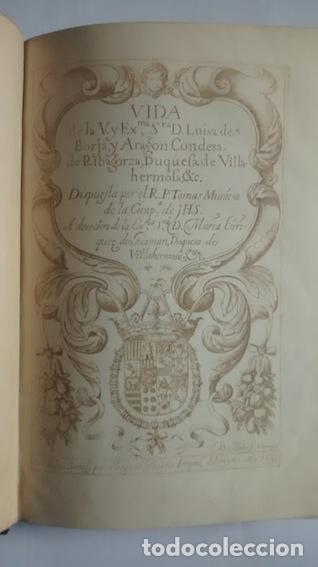 VIDA
de la V. y Ex.ma S.ra D. Luisa de
Borja, y Aragon Condesa
de Ribagorza, Duquesa de Villa
hermosa, &c.
Dispuesta por el R. P. Tomas Muniesa
de la Comp.a de JHS.
A devocion de la Ex.ma S.ra D. Maria Enri
quez de Guzman, Duquesa de
Villahermosa, &c.
todocoleccion.net